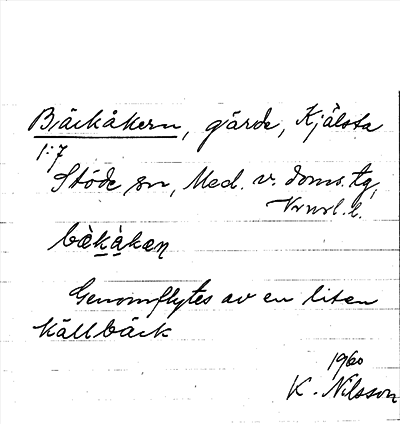 Bäckåkern, gärde, Kjälsta
1:7
Stöde sn, Med. v. doms. tg,
Vrnrl. l.
bæ̀kå̀kæṇ
Genomflytes av en liten
källbäck
1960
K. Nilsson